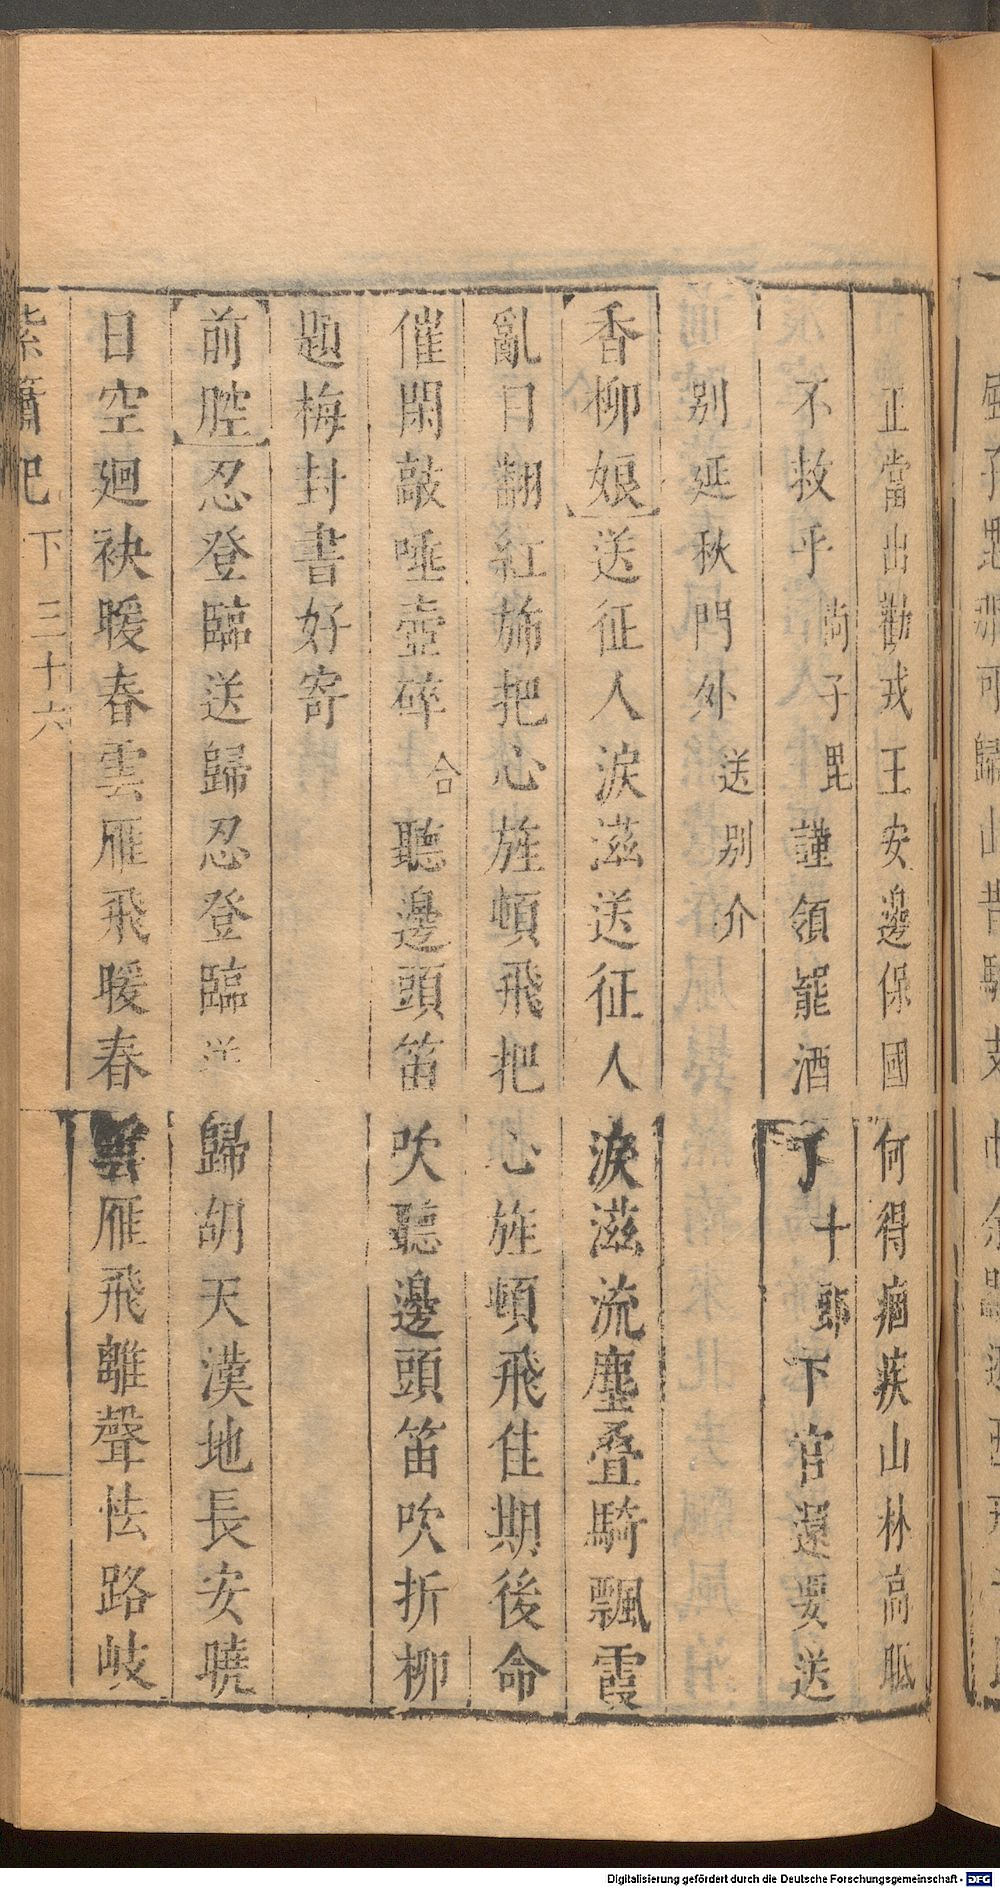 正當出勸戎王安邊保國何得痼疾山林高胝
不救乎尚子毘謹領罷酒了十郎下官還要送
別延秋門外送別介
香柳娘送征人淚滋送征人淚滋流塵疊騎飄霞
亂日翻紅斾把心旌頓飛把心旌頓飛佳期後命
催閑敲唾壺碎合聽邊頭笛吹聽邊頭笛吹折柳
題梅封書好寄
前腔忍登臨送歸忍登臨送歸胡天漢地長安曉
日空廻袂暖春雲雁飛暖春雲雁飛離聲怯路岐
紫簫記 下 三十六
Digitalisierung gefördert durch die Deutsche Forschungsgemeinschaft - DFG